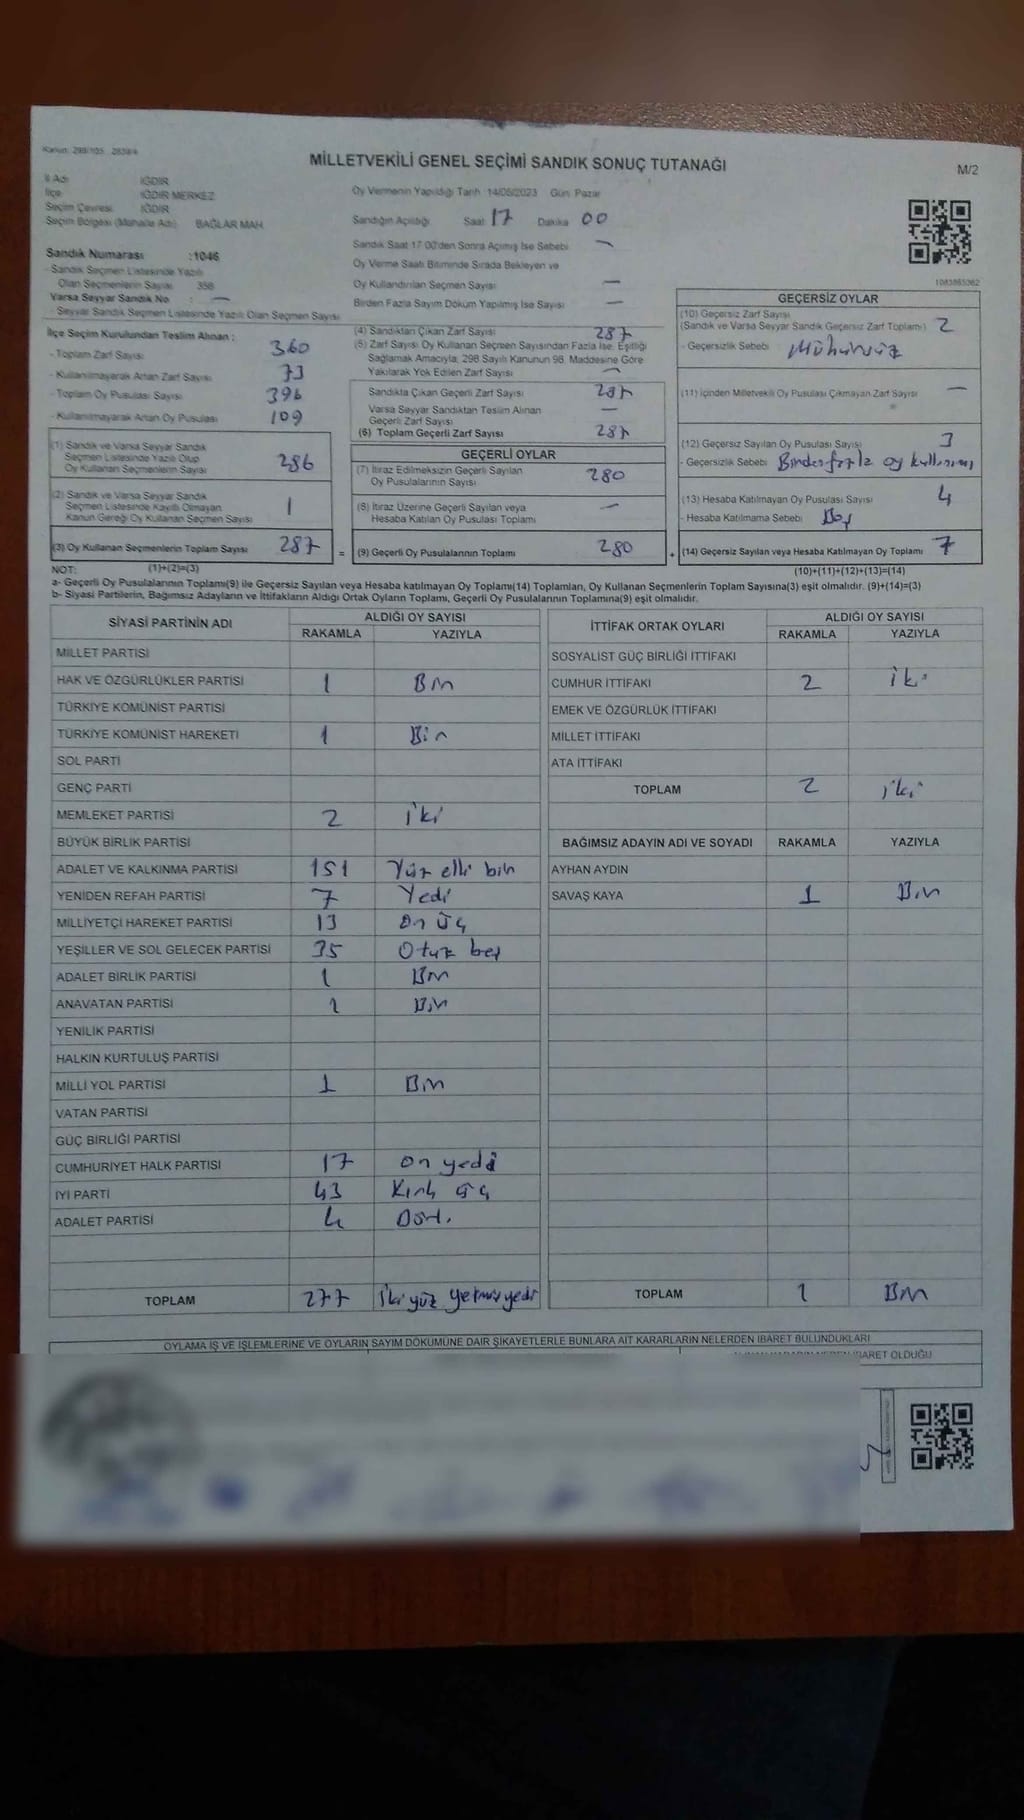 Kanun: 298/105 . 2839/4
MİLLETVEKİLİ GENEL SEÇİMİ SANDIK SONUÇ TUTANAĞI
M/2
İl Adı IĞDIR
İlçe IĞDIR MERKEZ
Seçim Çevresi IĞDIR
Seçim Bölgesi (Mahalle Adı) BAĞLAR MAH
Sandık Numarası :1046
- Sandık Seçmen Listesinde Yazılı
Olan Seçmenlerin Sayısı 358
Varsa Seyyar Sandık No : —
- Seyyar Sandık Seçmen Listesinde Yazılı Olan Seçmen Sayısı
Oy Vermenin Yapıldığı Tarih 14/05/2023 Gün Pazar
Sandığın Açıldığı Saat 17 Dakika 00
Sandık Saat 17:00'den Sonra Açılmış İse Sebebi —
Oy Verme Saati Bitiminde Sırada Bekleyen ve
Oy Kullandırılan Seçmen Sayısı —
Birden Fazla Sayım Döküm Yapılmış İse Sayısı —
1083865362
İlçe Seçim Kurulundan Teslim Alınan :
- Toplam Zarf Sayısı 360
- Kullanılmayarak Artan Zarf Sayısı 73
- Toplam Oy Pusulası Sayısı 396
- Kullanılmayarak Artan Oy Pusulası 109
(1) Sandık ve Varsa Seyyar Sandık
Seçmen Listesinde Yazılı Olup
Oy Kullanan Seçmenlerin Sayısı 286
(2) Sandık ve Varsa Seyyar Sandık
Seçmen Listesinde Kayıtlı Olmayan
Kanun Gereği Oy Kullanan Seçmen Sayısı 1
(3) Oy Kullanan Seçmenlerin Toplam Sayısı 287 =
(4) Sandıktan Çıkan Zarf Sayısı 287
(5) Zarf Sayısı Oy Kullanan Seçmen Sayısından Fazla İse, Eşitliği
Sağlamak Amacıyla, 298 Sayılı Kanunun 98. Maddesine Göre
Yakılarak Yok Edilen Zarf Sayısı —
Sandıkta Çıkan Geçerli Zarf Sayısı 287
Varsa Seyyar Sandıktan Teslim Alınan
Geçerli Zarf Sayısı —
(6) Toplam Geçerli Zarf Sayısı 287
GEÇERLİ OYLAR
(7) İtiraz Edilmeksizin Geçerli Sayılan
Oy Pusulalarının Sayısı 280
(8) İtiraz Üzerine Geçerli Sayılan veya
Hesaba Katılan Oy Pusulası Toplamı —
(9) Geçerli Oy Pusulalarının Toplamı 280 +
GEÇERSİZ OYLAR
(10) Geçersiz Zarf Sayısı
(Sandık ve Varsa Seyyar Sandık Geçersiz Zarf Toplamı) 2
- Geçersizlik Sebebi Mühürsüz
(11) İçinden Milletvekili Oy Pusulası Çıkmayan Zarf Sayısı —
(12) Geçersiz Sayılan Oy Pusulası Sayısı 3
- Geçersizlik Sebebi Birden fazla oy kullanımı
(13) Hesaba Katılmayan Oy Pusulası Sayısı 4
- Hesaba Katılmama Sebebi Boş
(14) Geçersiz Sayılan veya Hesaba Katılmayan Oy Toplamı 7
NOT: (1)+(2)=(3) (10)+(11)+(12)+(13)=(14)
a- Geçerli Oy Pusulalarının Toplamı(9) ile Geçersiz Sayılan veya Hesaba katılmayan Oy Toplamı(14) Toplamları, Oy Kullanan Seçmenlerin Toplam Sayısına(3) eşit olmalıdır. (9)+(14)=(3)
b- Siyasi Partilerin, Bağımsız Adayların ve İttifakların Aldığı Ortak Oyların Toplamı, Geçerli Oy Pusulalarının Toplamına(9) eşit olmalıdır.
SİYASİ PARTİNİN ADI ALDIĞI OY SAYISI
RAKAMLA YAZIYLA
MİLLET PARTİSİ
HAK VE ÖZGÜRLÜKLER PARTİSİ 1 Bir
TÜRKİYE KOMÜNİST PARTİSİ
TÜRKİYE KOMÜNİST HAREKETİ 1 Bir
SOL PARTİ
GENÇ PARTİ
MEMLEKET PARTİSİ 2 iki
BÜYÜK BİRLİK PARTİSİ
ADALET VE KALKINMA PARTİSİ 151 Yüz elli bir
YENİDEN REFAH PARTİSİ 7 Yedi
MİLLİYETÇİ HAREKET PARTİSİ 13 on üç
YEŞİLLER VE SOL GELECEK PARTİSİ 35 Otuz beş
ADALET BİRLİK PARTİSİ 1 Bir
ANAVATAN PARTİSİ 1 Bir
YENİLİK PARTİSİ
HALKIN KURTULUŞ PARTİSİ
MİLLİ YOL PARTİSİ 1 Bir
VATAN PARTİSİ
GÜÇ BİRLİĞİ PARTİSİ
CUMHURİYET HALK PARTİSİ 17 on yedi
İYİ PARTİ 43 Kırk üç
ADALET PARTİSİ 4 Dört.
TOPLAM 277 İki yüz yetmiş yedi
İTTİFAK ORTAK OYLARI ALDIĞI OY SAYISI
RAKAMLA YAZIYLA
SOSYALİST GÜÇ BİRLİĞİ İTTİFAKI
CUMHUR İTTİFAKI 2 iki
EMEK VE ÖZGÜRLÜK İTTİFAKI
MİLLET İTTİFAKI
ATA İTTİFAKI
TOPLAM 2 iki
BAĞIMSIZ ADAYIN ADI VE SOYADI RAKAMLA YAZIYLA
AYHAN AYDIN
SAVAŞ KAYA 1 Bir
TOPLAM 1 Bir
OYLAMA İŞ VE İŞLEMLERİNE VE OYLARIN SAYIM DÖKÜMÜNE DAİR ŞİKAYETLERLE BUNLARA AİT KARARLARIN NELERDEN İBARET BULUNDUKLARI
İBARET OLDUĞU